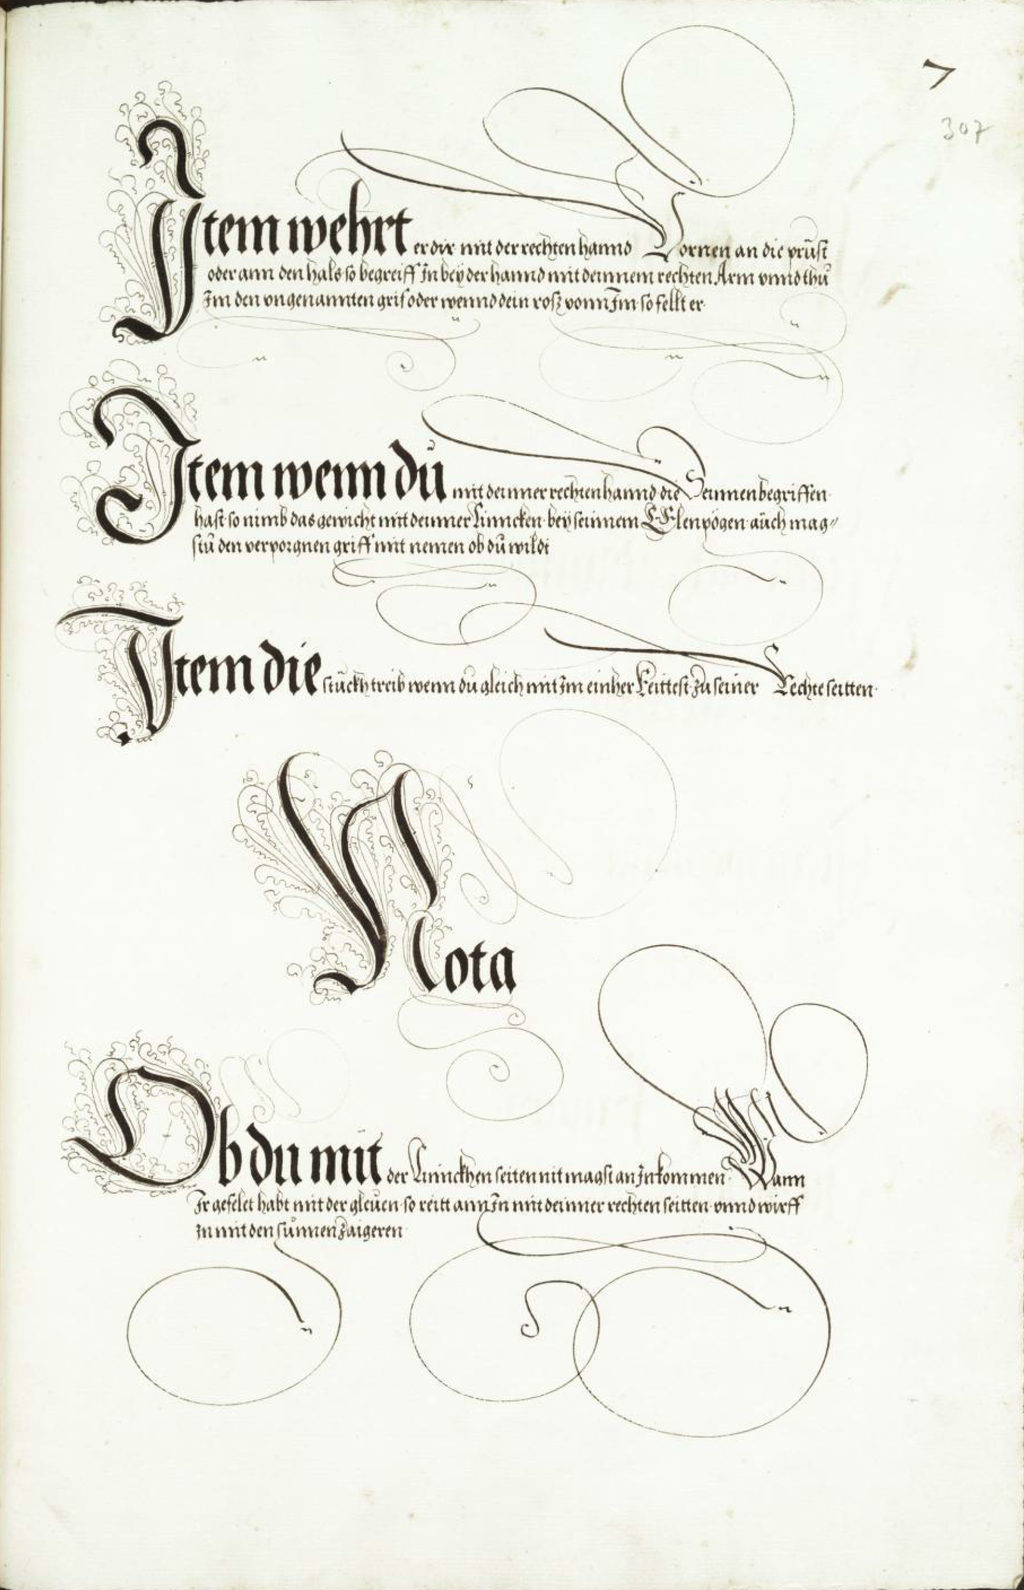 7
307
Item wehrt er dir mit der rechten hannd Vornen an die prüst
oder ann den hals so begreiff In bey der hannd mit deinnem rechten Arm vnnd thů
Im den vngenannten grif oder wennd dein rosz vonn Im so fellt er
Item wenn dů mit deinner rechten hannd die Seinnen begriffen
hast so nimb das gewicht mit deinner Linncken bey seinnem Elenpogen aůch mag=
stů den verporgnen griff mit nemen ob dů wildt
Item die stůckh treib wenn dů gleich mit Im einher Reittest zů seiner Rechte seitten
Nota
Ob du mit der Linnckhen seiten nit magst an In kommen Wann
Ir gefelet habt mit der gleuen so reitt ann In mit deinner rechten seitten vnnd wirff
In mit den sůnnen Zaigeren